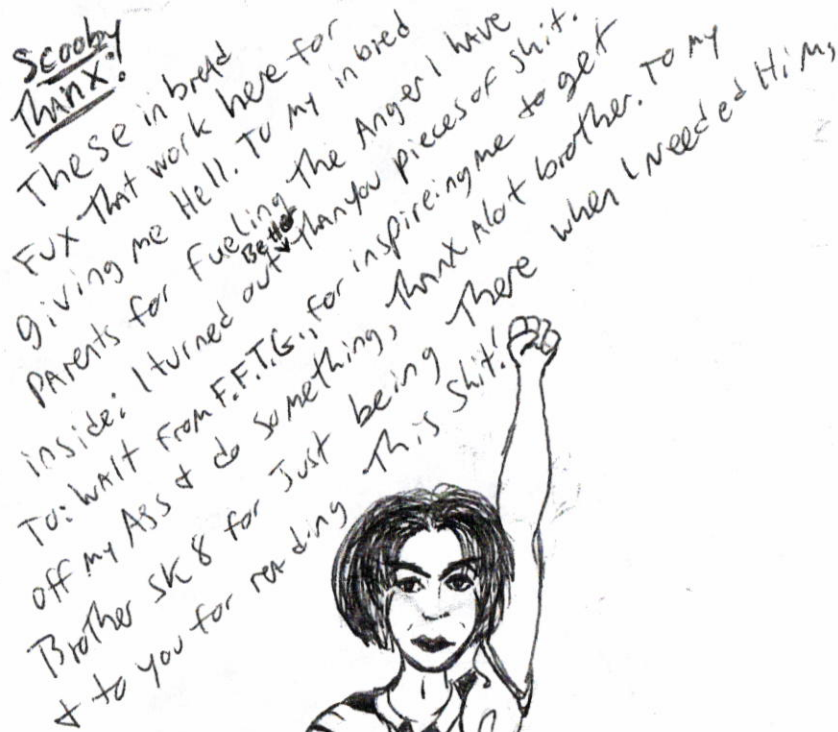 Scooby
Thanx!
These in bread
Fux That work here for
giving me Hell. To my in bred
Parents for fueling The Anger I have
inside: I turned out Better Than you pieces of shit.
To: Walt from F.F.T.G., for inspireing me to get
off my Ass & do something, Thanx Alot brother. To my
Brother SK8 for Just being There when I needed Him,
& to you for reading This Shit!